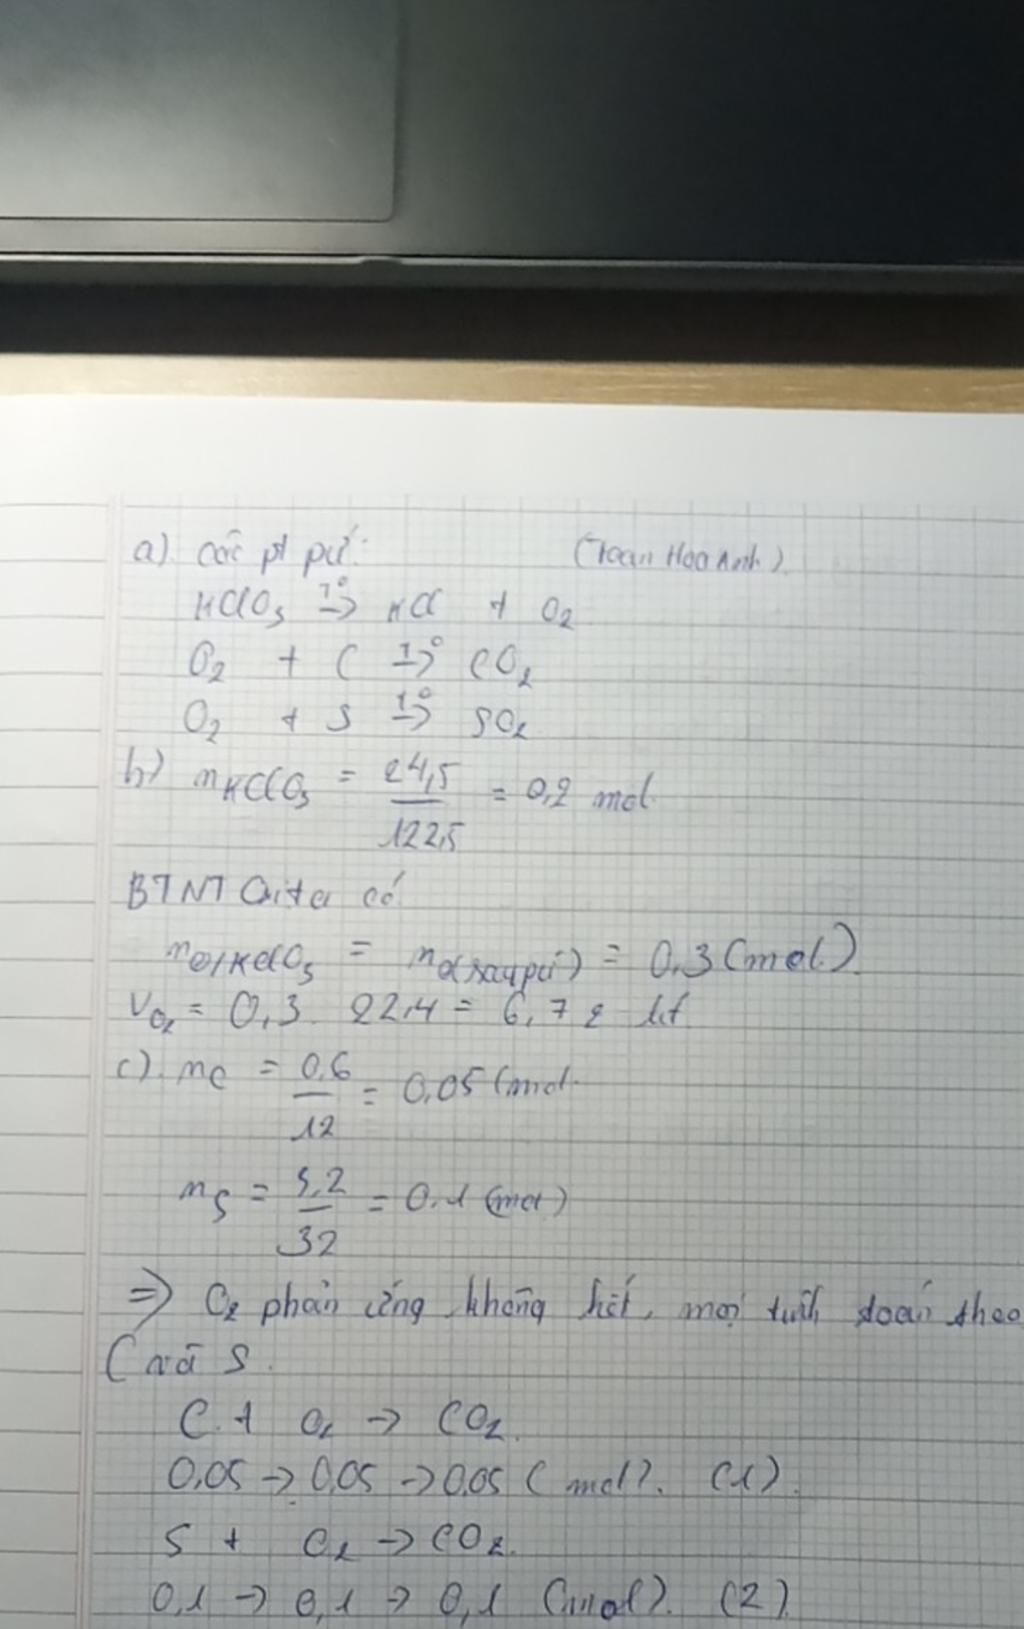 a). các pt pứ: (Toan Hoa Anh)
KClO3 t°→ KCl + O2
O2 + C t°→ CO2
O2 + S t°→ SO2
b) nKClO3 = 24,5/122,5 = 0,2 mol
BTNT Oxita có
nO/KClO3 = nO(sau pứ) = 0,3 (mol)
VO2 = 0,3 . 22,4 = 6,72 lít
c). nC = 0,6/12 = 0,05 (mol.
nS = 3,2/32 = 0,1 (mol)
=> O2 phản ứng không hết, mọi tính toán theo
C và S.
C + O2 → CO2.
0,05 → 0,05 → 0,05 (mol). (1).
S + O2 → CO2.
0,1 → 0,1 → 0,1 (mol). (2)